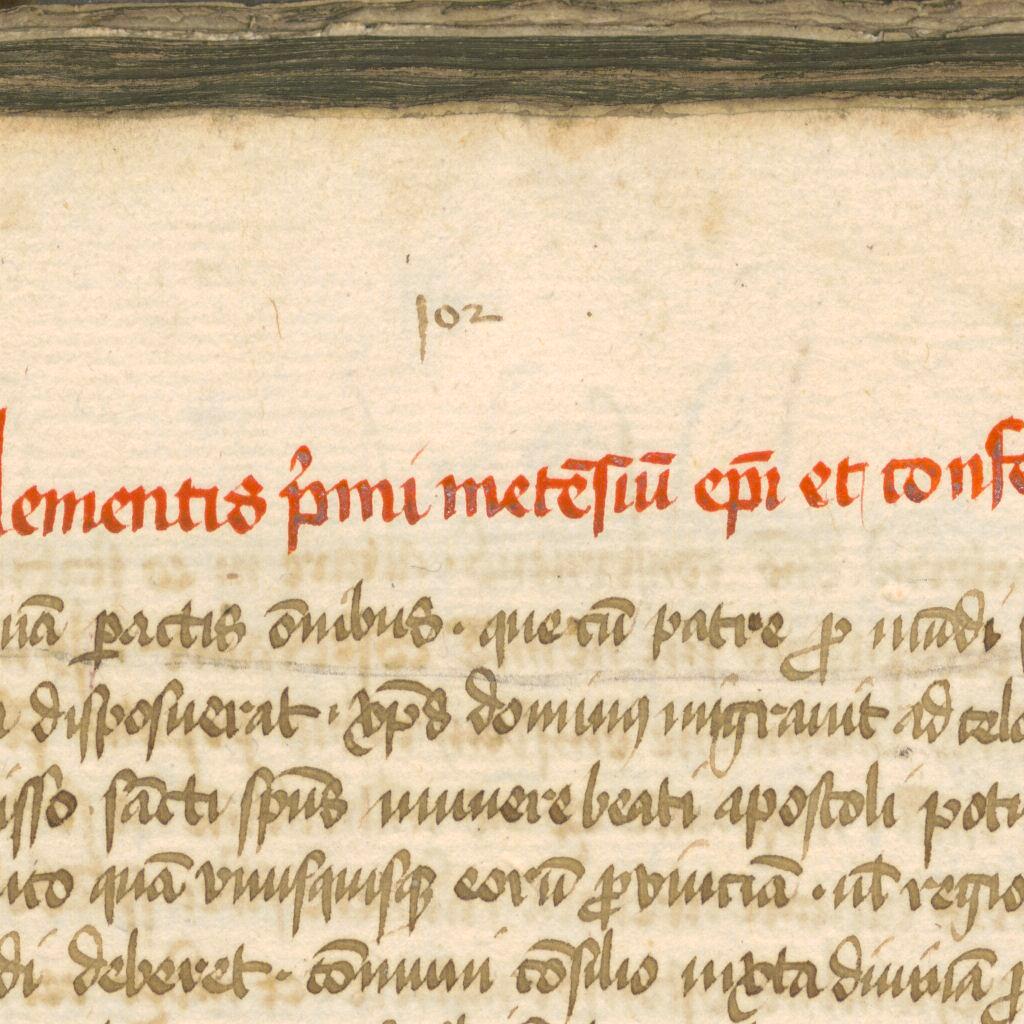 102
lementis p̓mi metēsiū ep̄i et confe
uā ꝑactis ōnibus · que cū patre ꝓ mūdi
disposuerat · xp̄s dominꝰ migrauit ad celo
isso sācti sp̄us munere beati apostoli potu
ito quā vnusquisqꝫ eorū ꝓuinciā · ul̄ regio
di deberet · cōmuni cōsilio iuxta diuinā ꝓ